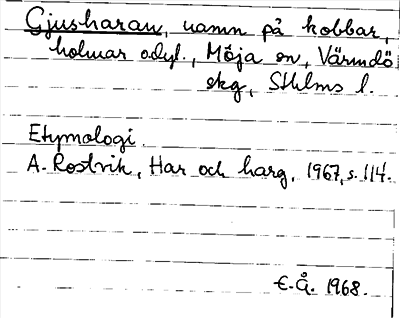 Gjusharan, namn på kobbar,
holmar o.dyl., Möja sn, Värmdö
skg, Sthlms l.
Etymologi.
A. Rostvik, Har och harg, 1967, s. 114.
E.Å. 1968.